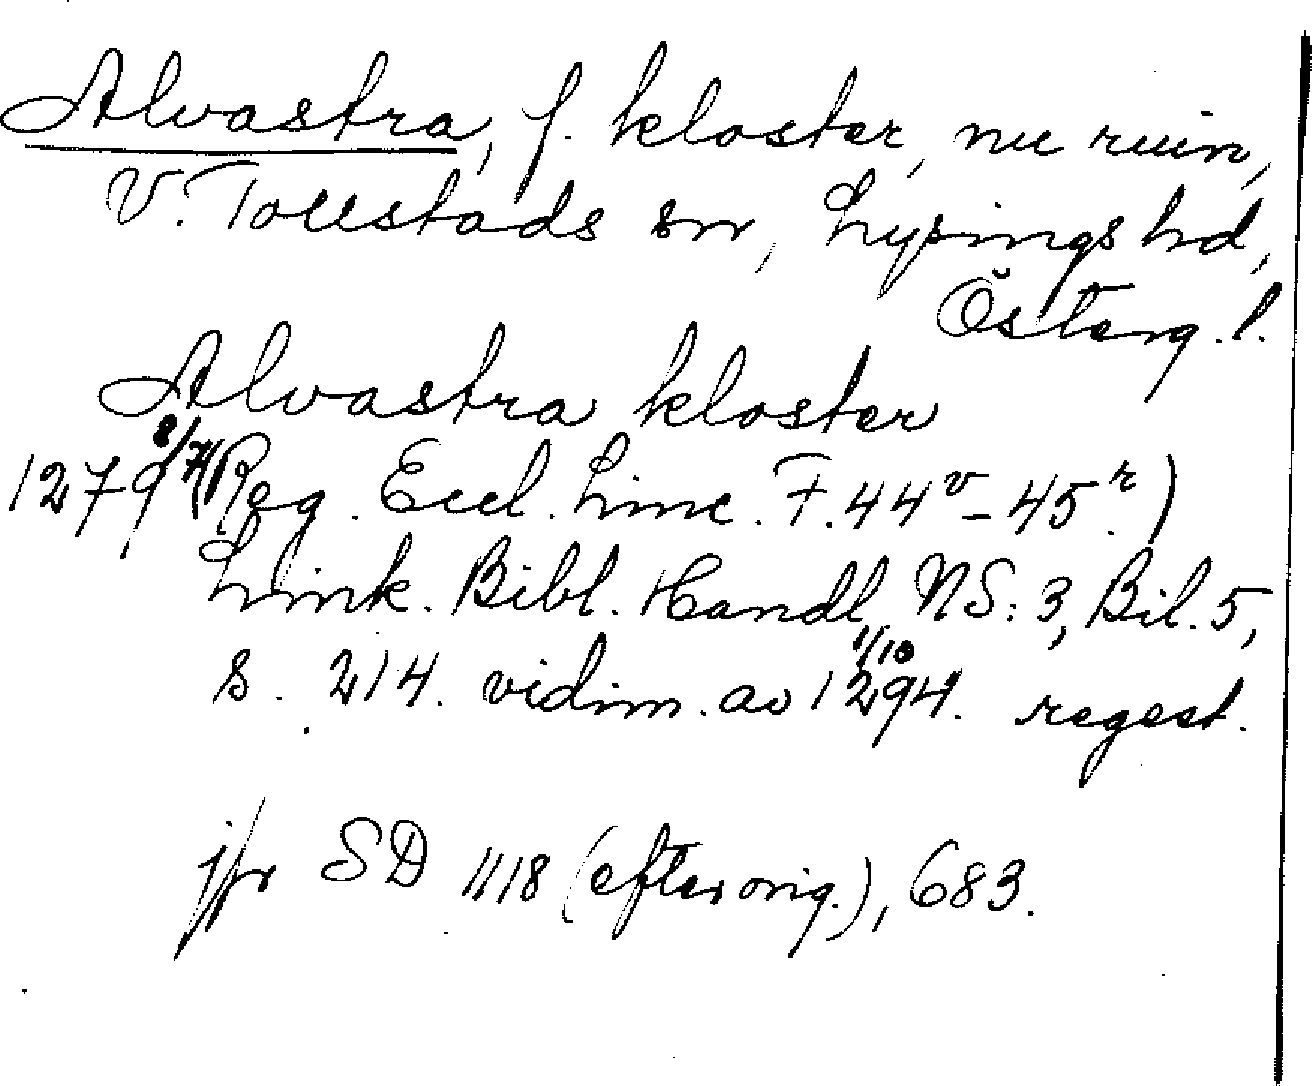 Alvastra, f. kloster, nu ruin,
V. Tollstads sn, Lysings hd,
Österg. l.
Alvastra kloster
1279 8/7 (Reg. Eccl. Linc. F. 44v - 45r.)
Link. Bibl. Handl. NS: 3, Bil. 5,
s. 214. vidim. av 1/10 1294. regest.
jfr SD 1118 (efter orig.), 683.